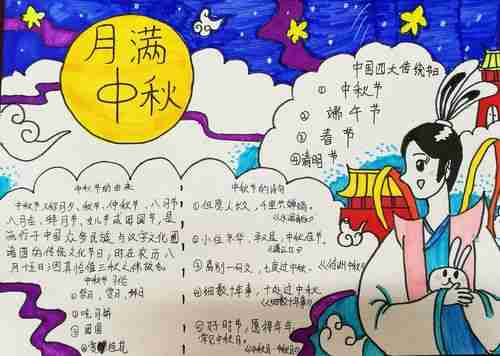 月满
中秋
中国四大传统节日
① 中秋节
② 端午节
③ 春节
④清明节
中秋节的由来
中秋节又称月夕、秋节、仲秋节、八月节
八月会、拜月节、女儿节或团圆节,是
流行于中国众多民族与汉字文化圈
诸国的传统文化节日,时在农历八
月十五;因其恰值三秋之半,故名
中秋节习俗
①祭月,赏月,拜月
②吃月饼
③团圆
④赏桂花
中秋节的诗句
①但愿人长久,千里共婵娟。
②小住京华,早又是,中秋佳节。
《满江红》
③离别一何久,七度过中秋。
④细数十年事,十处过中秋
《细数十年事》
⑤好时节,愿得年年,
常见中秋月。